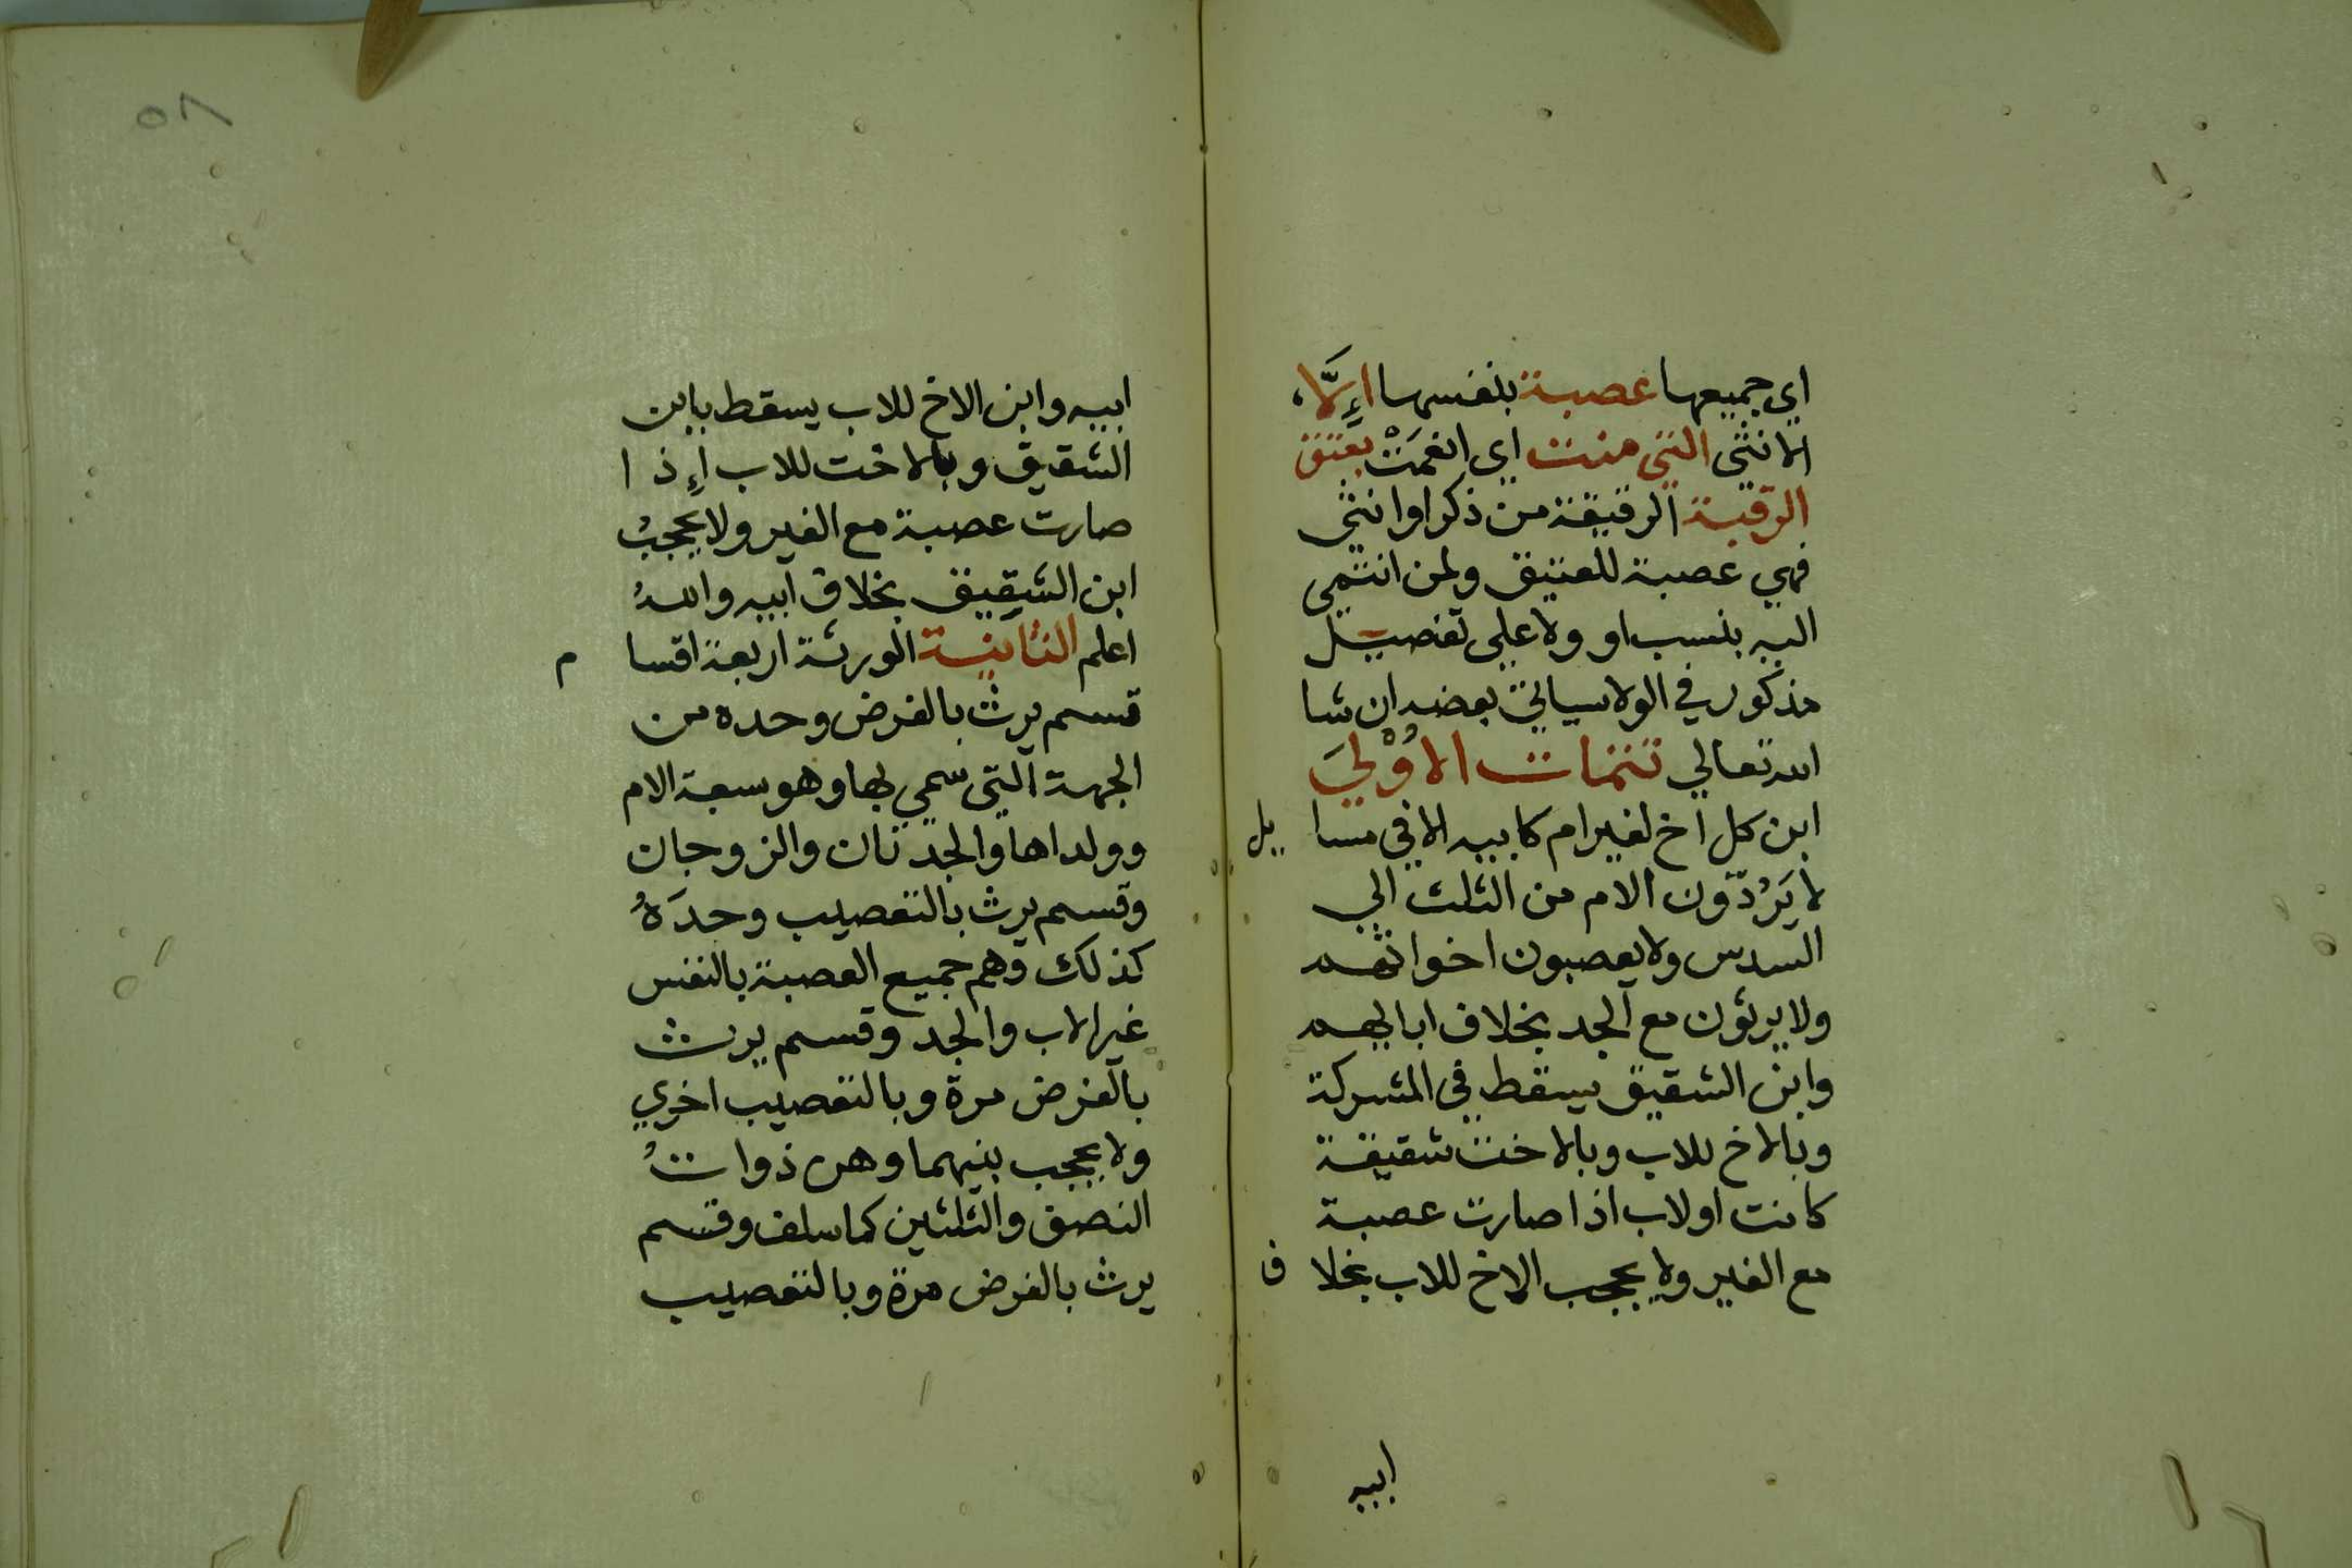 اي جميعها عصبة بنفسها اإِلَّا
الانثى التي منت اي انعمَتْ بعتق
الرقبة الرقيقة من ذكر او انثى
فهي عصبة للعتيق ولمن انتمي
اليه بنسب او ولا علي تفصيل
مذكور في الولا سياتي بعضه ان شا
الله تعالي تتمات الاُوْليَ
ابن كل اخ لغير ام كابيه الا في مسايل
لا يَرُدّون الام من الثلث الي
السدس ولا يعصبون اخواتهم
ولا يرثون مع الجد بخلاف ابايهم
وابن الشقيق يسقط في المشركة
وبالاخ للاب وبالاخت شقيقة
كانت او لاب اذا صارت عصبة
مع الغير ولا يحجب الاخ للاب بخلاف
ابيه
٥٨
ابيه وابن الاخ للاب يسقط بابن
الشقيق وبالاخت للاب اإِذا
صارت عصبة مع الغير ولا يحجبُ
ابن الشقيق بخلاف ابيه واللهُ
اعلم الثانية الورثة اربعة اقسام
قسم يرث بالفرض وحده من
الجهة التي سمي بها وهو سبعة الام
وولداها والجدتان والزوجان
وقسم يرث بالتعصيب وحدَهُ
كذلك وهم جميع العصبة بالنفس
غير الاب والجد وقسم يرث
بالفرض مرة وبالتعصيب اخري
ولا يجمع بينهما وهن ذواتُ
النصف والثلثين كما سلف وقسم
يرث بالفرض مرة وبالتعصيب